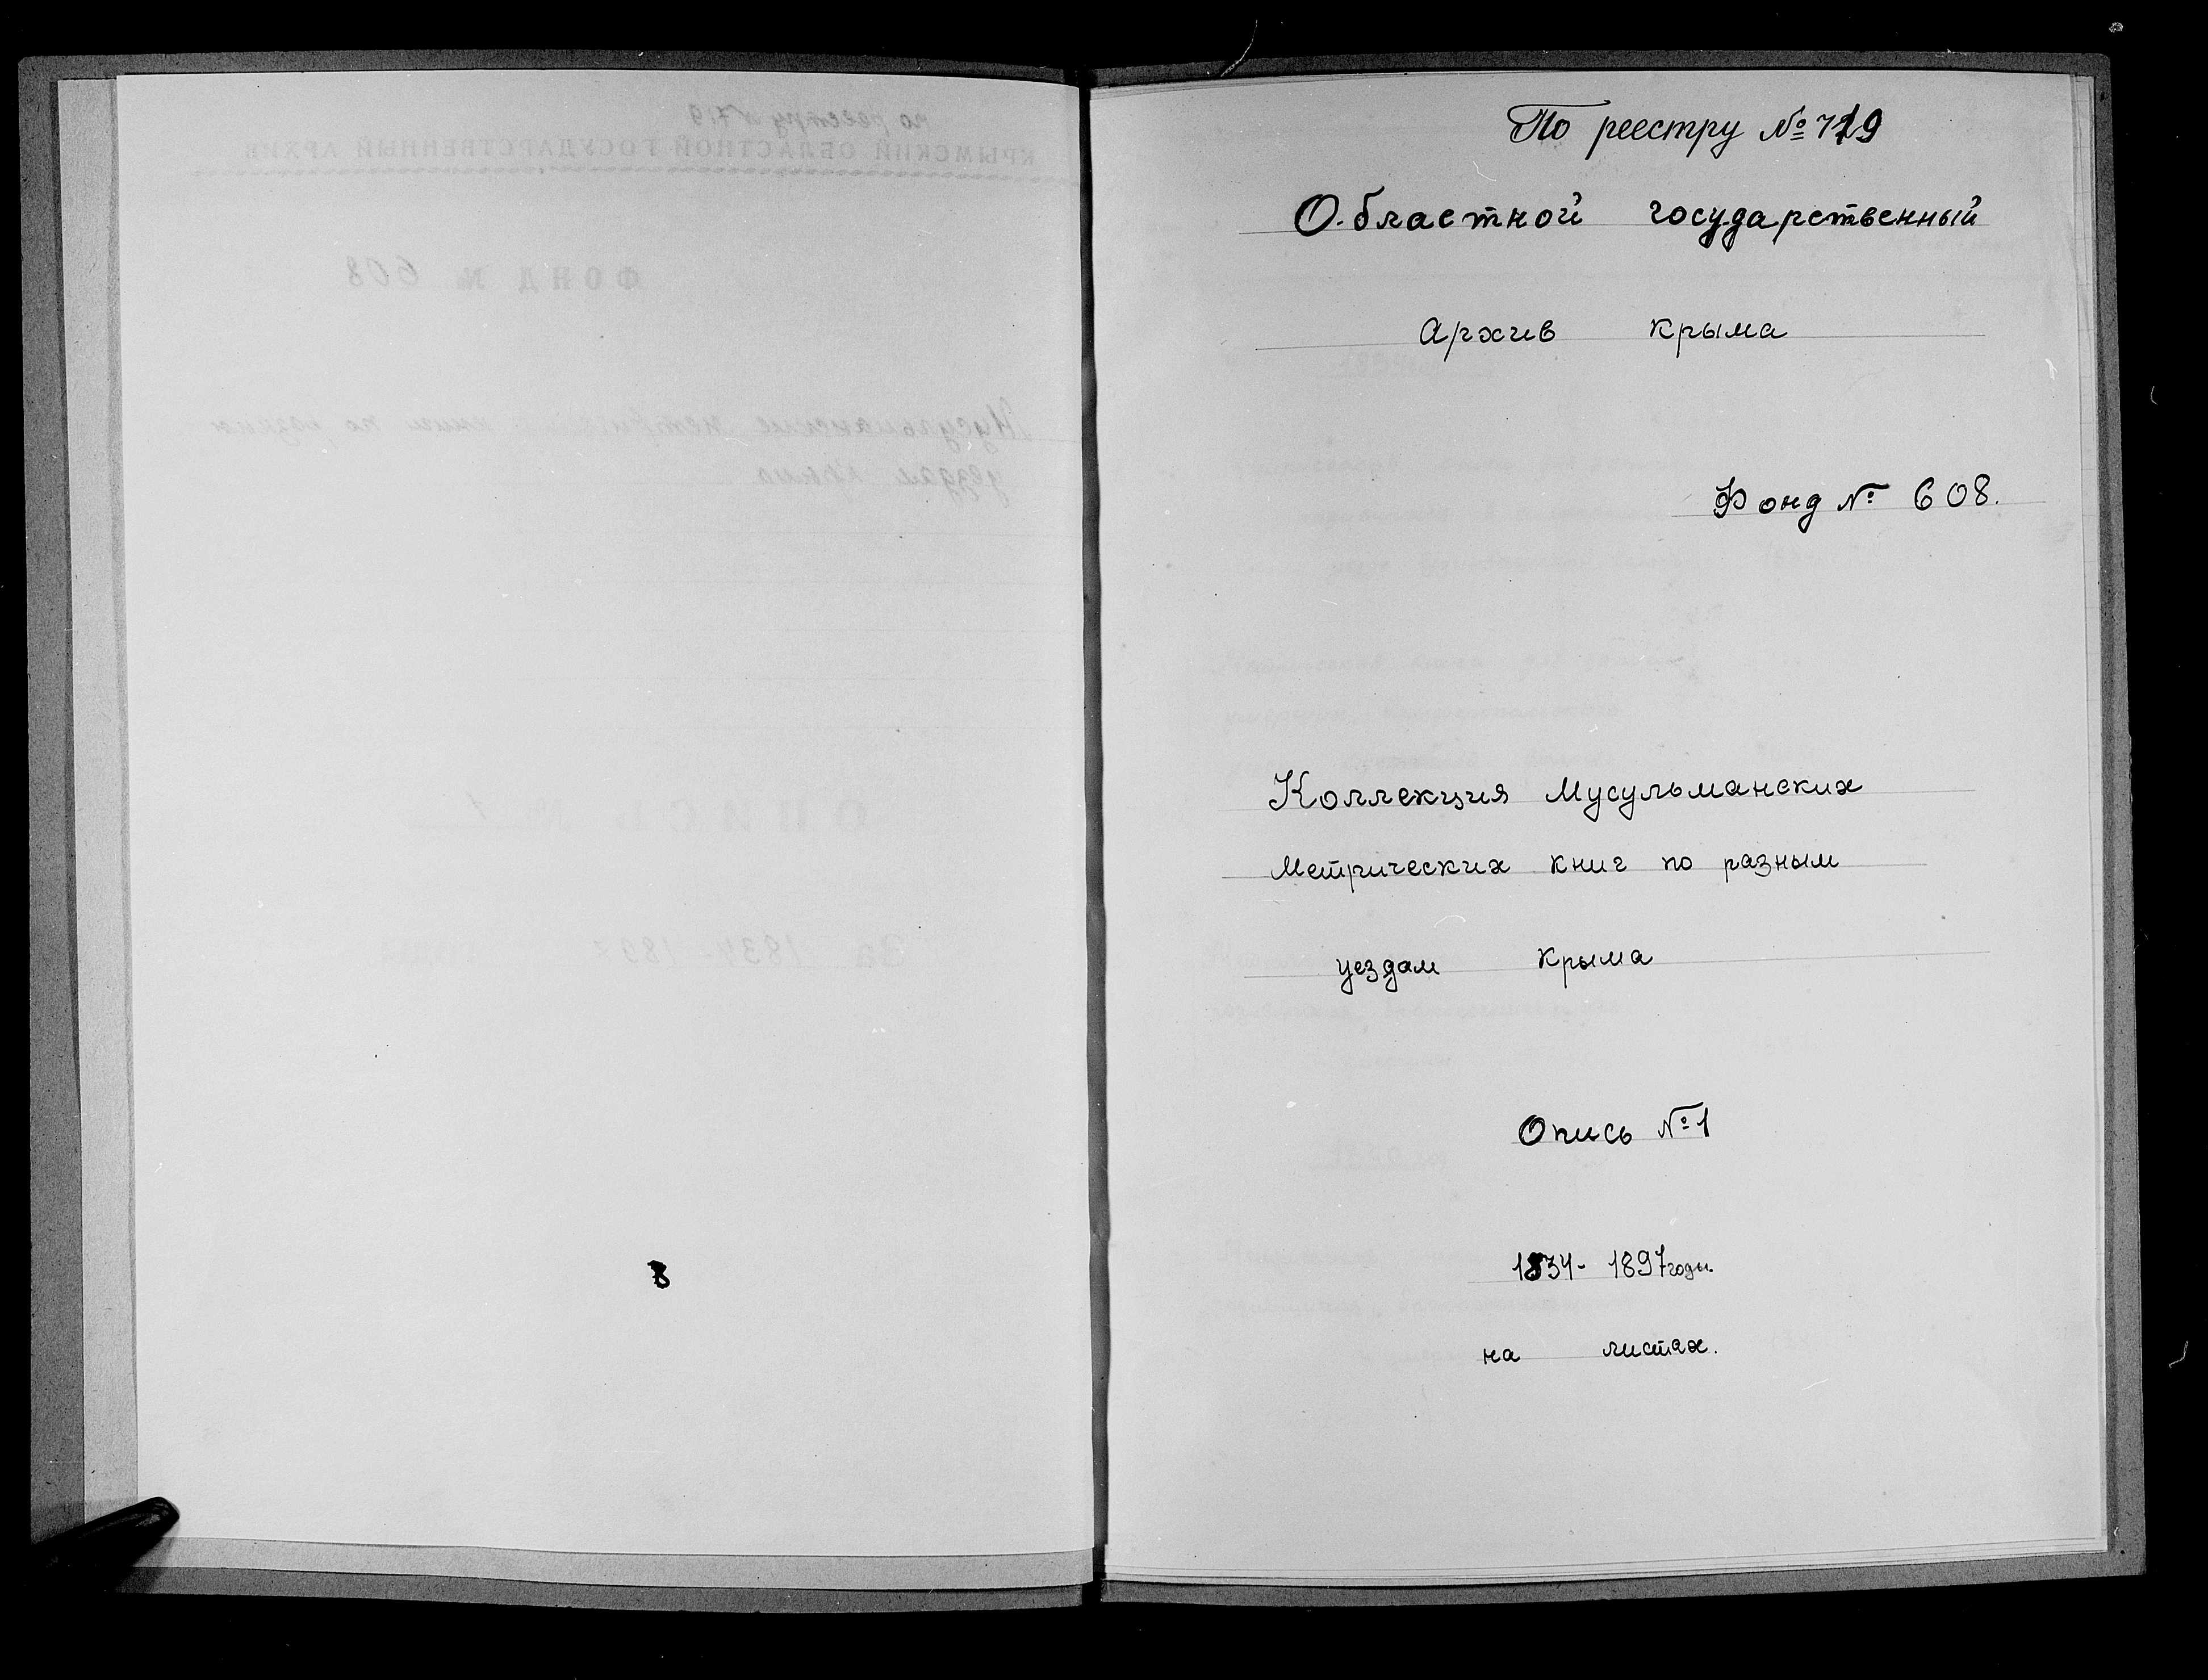 По реестру № 719
Областной государственный
Архив Крыма
Фонд № 608.
Коллекция Мусульманских
Метрических книг по разным
уездам Крыма
Опись № 1
1834 - 1897 годы.
на листах.